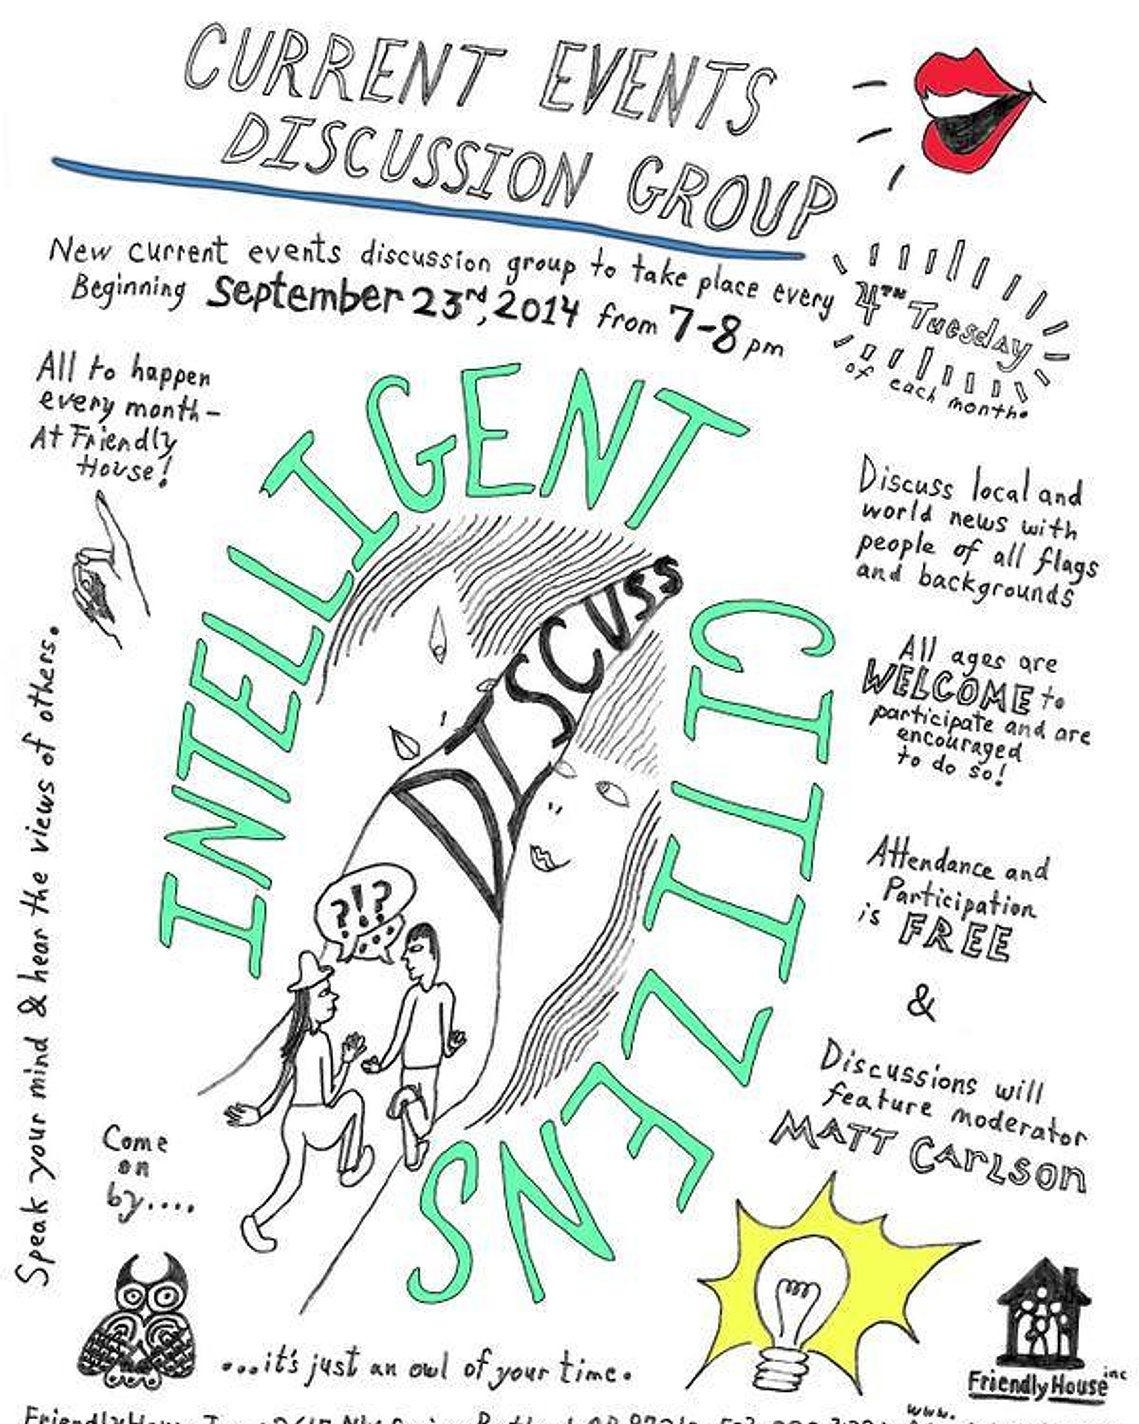 CURRENT EVENTS
DISCUSSION GROUP
New current events discussion group to take place every
4TH Tuesday
of each month.
Beginning September 23rd, 2014 from 7-8 pm
All to happen
every month-
At Friendly
House!
INTELLIGENT
CITIZENS
DISCUSS
?!?
Discuss local and
world news with
people of all flags
and backgrounds
All ages are
WELCOME to
participate and are
encouraged
to do so!
Attendance and
Participation
is FREE
&
Discussions will
feature moderator
MATT CARLSON
Speak your mind & hear the views of others.
Come
on
by....
...it's just an owl of your time.
FriendlyHouse inc
www.